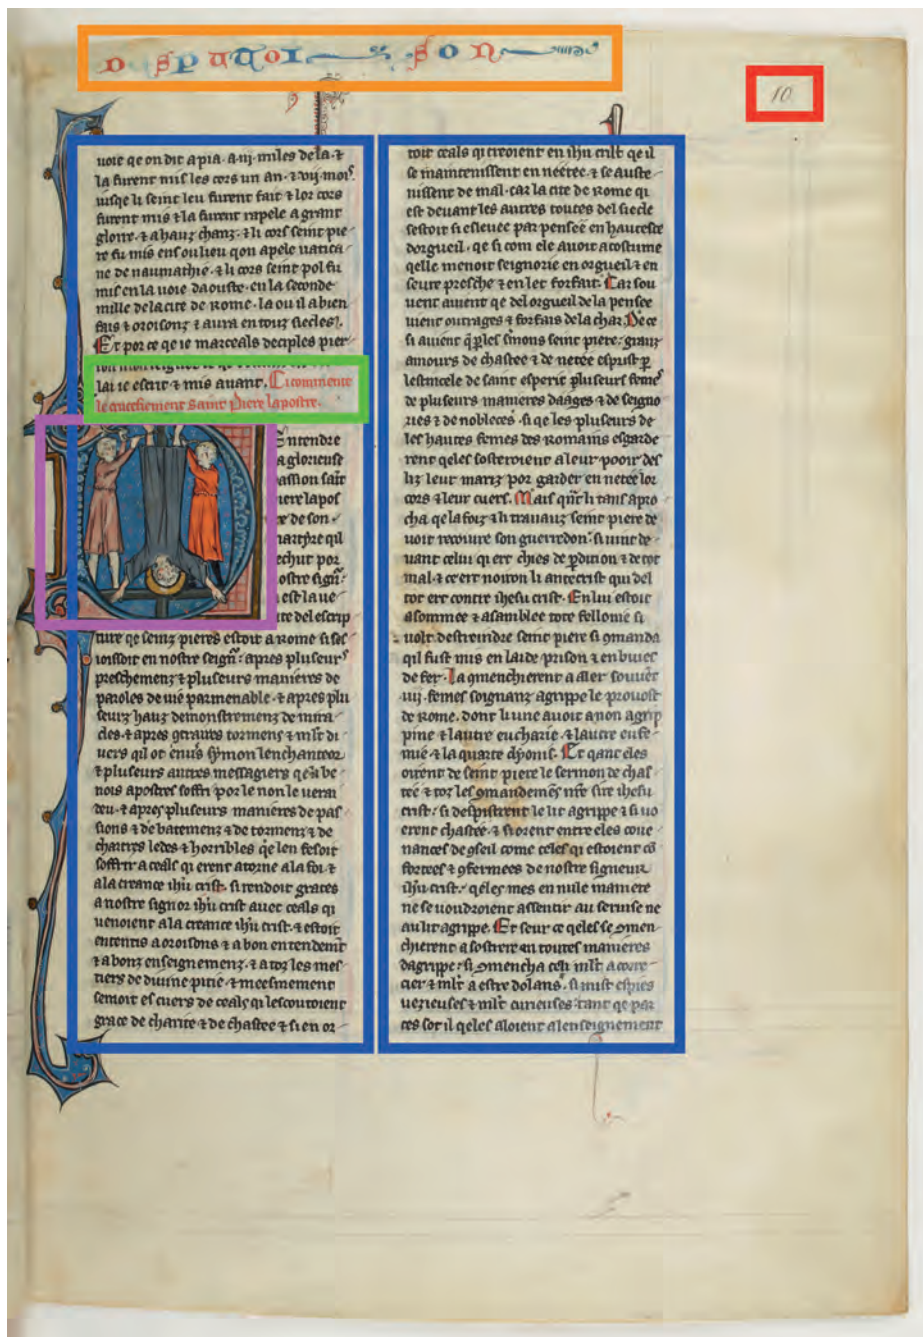 D SPUTOI SON
10
uoie qe on dit apia. a .iij. miles dela. ⁊
la furent mis les cors un an. ⁊ .vij. mois.
iusqe li seint leu furent fait ⁊ lor cors
furent mis ⁊ la furent rapele a grant
gloire. ⁊ a hauz chanz. ⁊ li cors seint pie
re fu mis en sou lieu qon apele uatica
ne de naumathie. ⁊ li cors seint pol fu
mis en la uoie daouste. en la seconde
mille dela cite de Rome. la ou il a bien
fais ⁊ oroisonz ⁊ aura en touz siecles.
Et por ce qe ie marceals deciples pier
lai ie escrit ⁊ mis auant. Ci commence
le crucefiement Saint Piere lapostre.
Entendre
a glorieuse
passion sait
piere lapos
tre de son
martyre qil
rechut por
nostre sign̄r
est la ue
te del escrip
ture qe seinz pieres estoit a Rome si ses
ioissoit en nostre seign̄r: apres pluseurs
preschemenz ⁊ pluseurs manieres de
paroles de uie parmenable. ⁊ apres plu
seurs hauz demonstremenz de mira
cles. ⁊ apres ꝯtraires tormens ⁊ ml̄t di
uers qil ot enuers symon lenchanteor
⁊ pluseurs autres messagiers
nois apostres soffri por le non le uerai
deu. ⁊ apres pluseurs manieres de pas
sions ⁊ de batemenz ⁊ de tormenz ⁊ de
chartres ledes ⁊ horribles qe len fesoit
soffrir a ceals qi erent atorne ala foi. ⁊
ala creance ih̄u crist. si rendoit graces
a nostre signor ih̄u crist auec ceals qi
uenoient ala creance ih̄u crist. ⁊ estoit
ententis a oroisons ⁊ a bon entendemt̄
⁊ a bonz enseignemenz. ⁊ a toz les mes
tiers de diuine pitie. ⁊ meesmement
semoit es cuers de ceals qi lescoutoient
grace de charite ⁊ de chastee ⁊ si en or
toit ceals qi creoient en ih̄u crist qe il
se maintenissent en neetee. ⁊ se auste
nissent de mal. car la cite de Rome qi
est deuant les autres toutes del siecle
sestoit si esleuee par pensee en hautesce
dorgueil. qe si com ele auoit acostume
qelle menoit seignorie en orgueil ⁊ en
seure presche ⁊ en let forfait. Car sou
uent auient qe del orgueil de la pensee
uient outrages ⁊ forfais de la char. De ce
si auient q̄ p̱ les s̄mons seint piere: granz
amours de chastee ⁊ de netee esprist p̱
lestincele de saint esperit pluseurs femes
de pluseurs manieres daages ⁊ de seigno
ries ⁊ de nobleces. si qe les pluseurs de
les hautes femes des Romains esgarde
rent qeles sosteroient a leur pooir des
liz leur mariz por garder en netee lor
cors ⁊ leur cuers. Mais qn̄t li tans apro
cha qe la foiz ⁊ li trauauz seint piere de
uoit recoiure son guerredon. si uint de
uant celui qi ert chies de p̱dition ⁊ de tot
mal. ⁊ ce ert noiron li antecrist qui del
tot ert contre ihesu crist. En lui estoit
asommee ⁊ asamblee tote fellonie si
uolt destreindre seint piere si ꝯmanda
qil fust mis en laide prison ⁊ en buies
de fer. La ꝯmenchierent a aller souuēt
.iiij. femes soignanz agrippe le prouost
de Rome. dont li une auoit a non agrip
pine ⁊ lautre eucharie. ⁊ lautre eufe
mie ⁊ la quarte dyonis. Et qant eles
oirent de seint piere le sermon de chas
tee ⁊ toz les ꝯmandemēs n̄re sire ihesu
crist: si despistrent le lit agrippe ⁊ si uo
erent chastee. ⁊ si orent entre eles coue
nances de ꝯseil come celes qi estoient cō
fortees ⁊ ꝯfermees de nostre signeur
ih̄u crist. qeles mes en nule maniere
ne se uoudroient assentir au seruise ne
au lit agrippe. Et seur ce qeles se ꝯmen
chierent a sostrere en toutes manieres
dagrippe: si ꝯmencha ml̄t a corre
cier ⁊ ml̄t a estre dolans. si mist espies
uezieuses ⁊ ml̄t curieuses. tant qe par
ces sot il qeles aloient al enseignement